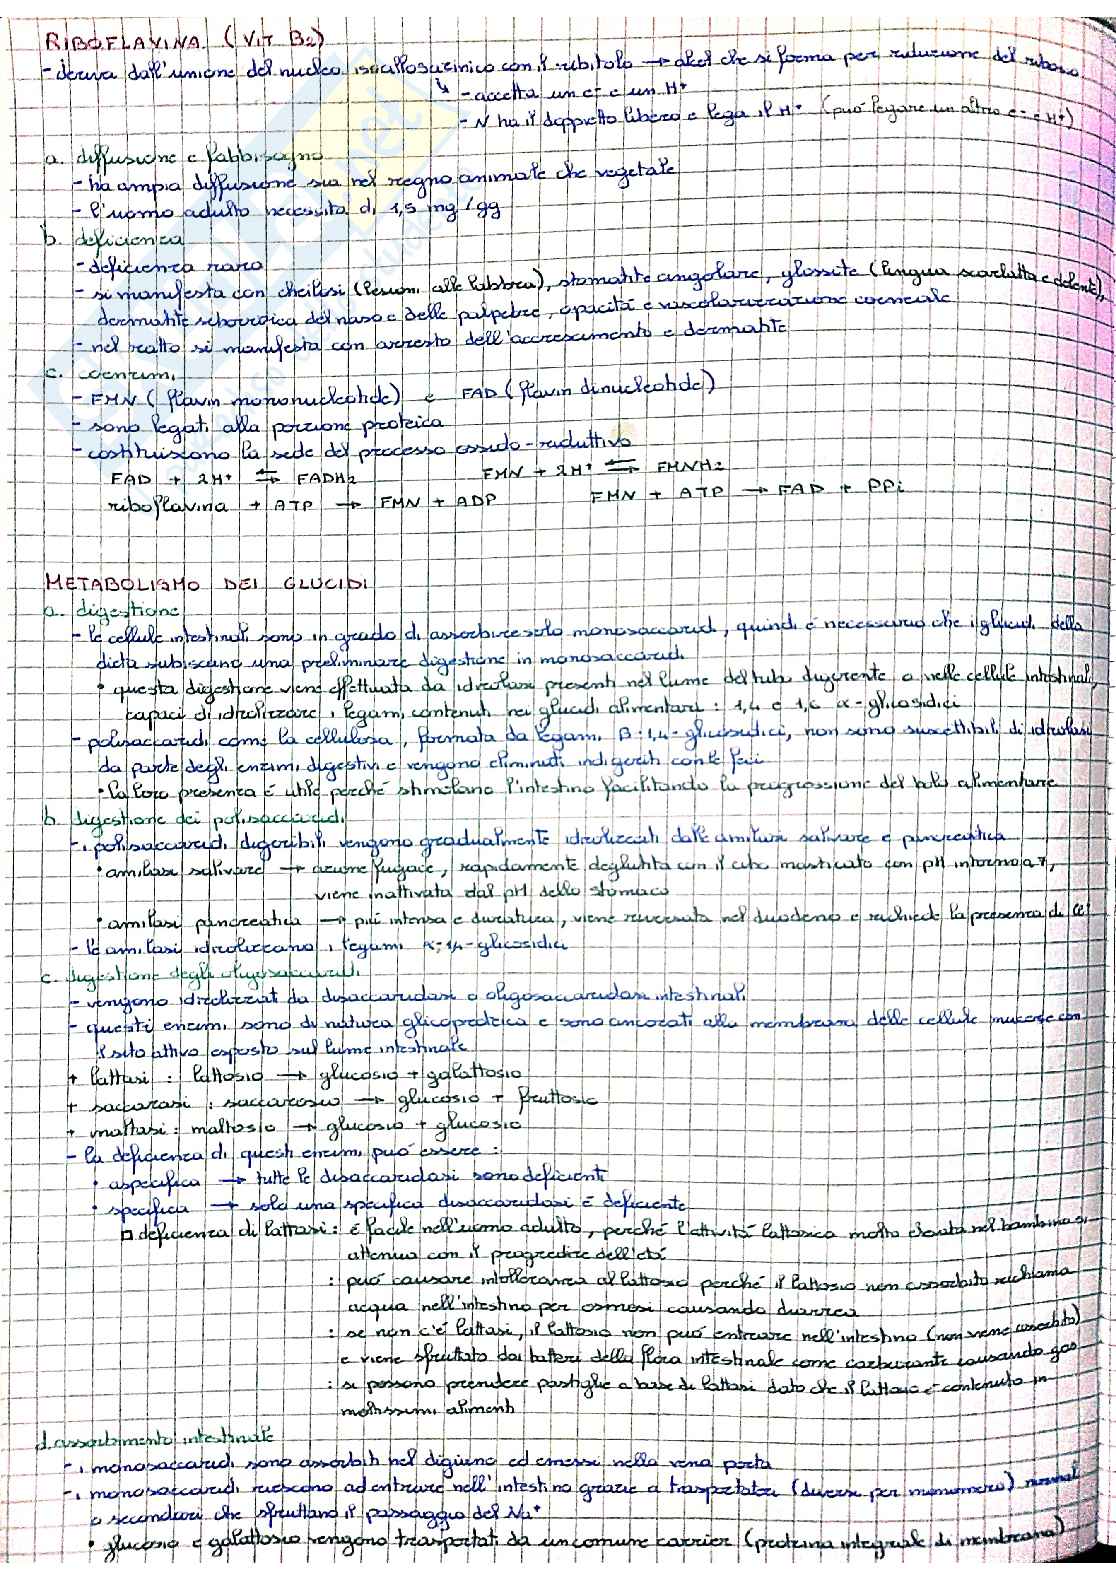 RIBOFLAVINA (VIT B2)
- deriva dall'unione del nucleo isoallosazinico con il ribitolo → alcol che si forma per riduzione del ribosio
↳ - accetta un e- e un H+
- N ha il doppietto libero e lega il H+ (può legare un altro e- e H+)
a. diffusione e fabbisogno
- ha ampia diffusione sia nel regno animale che vegetale
- l'uomo adulto necessita di 1,5 mg/gg
b. deficienza
- deficienza rara
- si manifesta con cheilosi (lesioni alle labbra), stomatite angolare, glossite (lingua scarlatta e dolente),
dermatite seborroica del naso e delle palpebre, opacità e vascolarizzazione corneale
- nel ratto si manifesta con arresto dell'accrescimento e dermatite
c. coenzimi
- FMN (flavin mononucleotide) e FAD (flavin dinucleotide)
- sono legati alla porzione proteica
- costituiscono la sede del processo ossido-riduttivo
FAD + 2H+ ⇆ FADH2 FMN + 2H+ ⇆ FMNH2
riboflavina + ATP → FMN + ADP FMN + ATP → FAD + PPi
METABOLISMO DEI GLUCIDI
a. digestione
- le cellule intestinali sono in grado di assorbire solo monosaccaridi, quindi è necessario che i glucidi della
dieta subiscano una preliminare digestione in monosaccaridi
• questa digestione viene effettuata da idrolasi presenti nel lume del tubo digerente o nelle cellule intestinali,
capaci di idrolizzare i legami contenuti nei glucidi alimentari: 1,4 e 1,6 α-glicosidici
- polisaccaridi come la cellulosa, formata da legami β-1,4-glicosidici, non sono suscettibili di idrolasi
da parte degli enzimi digestivi e vengono eliminati indigeriti con le feci
• la loro presenza è utile perché stimolano l'intestino facilitando la progressione del bolo alimentare
b. digestione dei polisaccaridi
- i polisaccaridi digeribili vengono gradualmente idrolizzati dalle amilasi salivare e pancreatica
• amilasi salivare → azione fugace, rapidamente deglutita con il cibo masticato con pH intorno a 7,
viene inattivata dal pH dello stomaco
• amilasi pancreatica → più intensa e duratura, viene riversata nel duodeno e richiede la presenza di Cl-
- le amilasi idrolizzano i legami α-1,4-glicosidici
c. digestione degli oligosaccaridi
- vengono idrolizzati da disaccaridasi o oligosaccaridasi intestinali
- questi enzimi sono di natura glicoproteica e sono ancorati alla membrana delle cellule mucose con
il sito attivo esposto sul lume intestinale
+ lattasi: lattosio → glucosio + galattosio
+ saccarasi: saccarosio → glucosio + fruttosio
+ maltasi: maltosio → glucosio + glucosio
- la deficienza di questi enzimi può essere:
• aspecifica → tutte le disaccaridasi sono deficienti
• specifica → solo una specifica disaccaridasi è deficiente
□ deficienza di lattasi: è facile nell'uomo adulto, perché l'attività lattasica molto elevata nel bambino si
attenua con il progredire dell'età
: può causare intolleranza al lattosio perché il lattosio non assorbito richiama
acqua nell'intestino per osmosi causando diarrea
: se non c'è lattasi, il lattosio non può entrare nell'intestino (non viene assorbito)
e viene sfruttato dai batteri della flora intestinale come carburante causando gas
: si possono prendere pastiglie a base di lattasi dato che il lattosio è contenuto in
moltissimi alimenti
d. assorbimento intestinale
- i monosaccaridi sono assorbiti nel digiuno ed emessi nella vena porta
- i monosaccaridi riescono ad entrare nell'intestino grazie a trasportatori (diversi per monomero) normali
o secondari che sfruttano il passaggio del Na+
• glucosio e galattosio vengono trasportati da un comune carrier (proteina integrale di membrana)